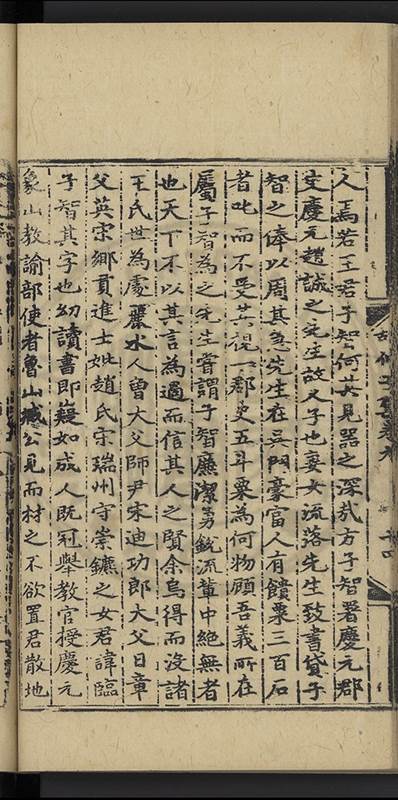 人焉若王君子智何其見器之深哉方子智署慶元郡
安慶元趙誠之先生故人子也妻女流落先生致書貸子
智之俸以周其急先生在吳門豪富人有饋粟三百石
者叱而不受其視一郡吏五斗粟為何物顧吾義所在
屬子智為之先生嘗謂子智廉潔勇銳流輩中絕無者
也天下不以其言為過而信其人之賢余烏得而沒諸
王氏世為處麗水人曾大父師尹宋迪功郎大父日章
父英宋鄉貢進士妣趙氏宋瑞州守崇鑣之女君諱臨
子智其字也幼讀書即嶷如成人既冠舉教官授慶元
象山教諭部使者魯山臧公見而材之不欲置君散地